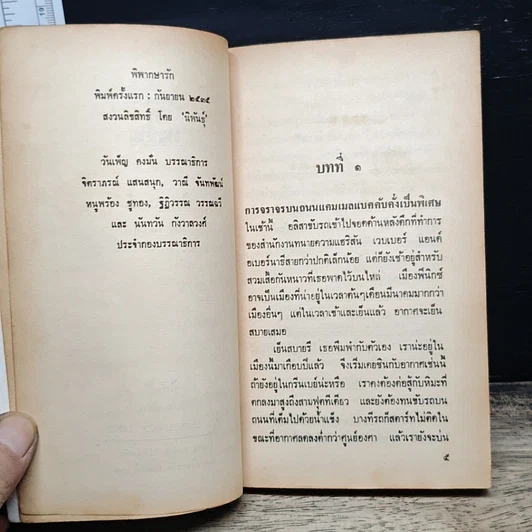 พิพากษารัก
พิมพ์ครั้งแรก : กันยายน ๒๕๓๕
สงวนลิขสิทธิ์ โดย 'นิพันธุ์'
วันเพ็ญ คงมั่น บรรณาธิการ
จิตราภรณ์ แสนสนุก, วาณี จันทพัฒน์
หนูพร้อง ชูทอง, ฐิฏิวรรณ วรรณฉวี
และ นันทวัน กังวาลวงค์
ประจำกองบรรณาธิการ
บทที่ ๑
การจราจรบนถนนแคมเมลแบคคับคั่งเป็นพิเศษ
ในเช้านี้ อลิสาขับรถเข้าไปจอดด้านหลังตึกที่ทำการ
ของสำนักงานทนายความแฮริสัน เวบเบอร์ แอนด์
อเบอร์นาธีสายกว่าปกติเล็กน้อย แต่ก็ยังเช้าอยู่สำหรับ
สวมเสื้อกันหนาวที่เธอพาดไว้บนไหล่ เมืองฟีนิกซ์
อาจเป็นเมืองที่น่าอยู่ในเวลาต้นๆเดือนมีนาคมมากกว่า
เมืองอื่นๆ แต่ในเวลาเช้าและเย็นแล้ว อากาศจะเย็น
สบายเสมอ
เย็นสบายรึ เธอพึมพำกับตัวเอง เราน่ะอยู่ใน
เมืองนี้มาเกือบปีแล้ว จึงเริ่มเคยชินกับอากาศเช่นนี้
ถ้ายังอยู่ในกรีนเบย์น่ะหรือ เราคงต้องต่อสู้กับหิมะที่
ตกลงมาสูงถึงสามฟุตทีเดียว และยังต้องทนขับรถบน
ถนนที่เต็มไปด้วยน้ำแข็ง บางทีรถก็สตาร์ทไม่ติดใน
ขณะที่อากาศลดลงต่ำกว่าศูนย์องศา แล้วเรายังจะบ่น
๕